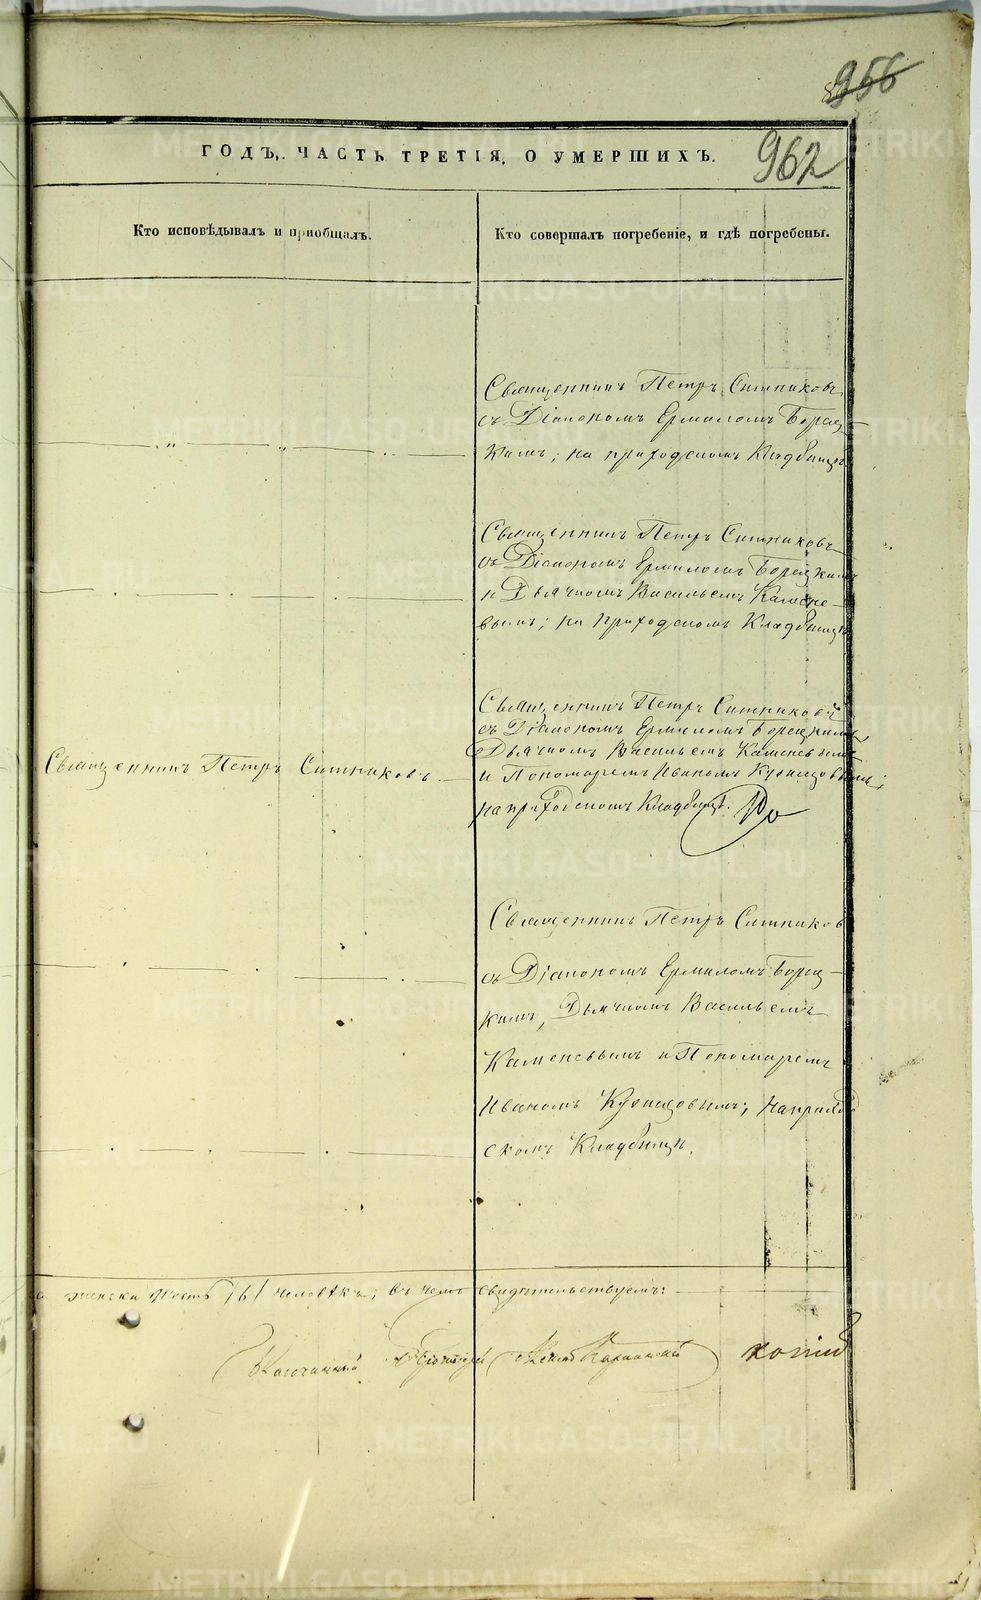 956
962
ГОДЪ, ЧАСТЬ ТРЕТІЯ, О УМЕРШИХЪ.
Кто исповѣдывалъ и пріобщалъ.
Кто совершалъ погребеніе, и гдѣ погребены.
Священникъ Петръ Ситниковъ
съ Діакономъ Ермиломъ Борец-
кимъ, на приходскомъ Кладбищѣ
Священникъ Петръ Ситниковъ
съ Діакономъ Ермиломъ Борецкимъ
и Дьячкомъ Васильемъ Камене-
вымъ; на приходскомъ Кладбищѣ
Священникъ Петръ Ситниковъ
съ Діакономъ Ермиломъ Борецкимъ,
Дьячкомъ Васильемъ Каменевымъ
Священникъ Петръ Ситниковъ.
и Пономаремъ Иваномъ Кузнецовымъ;
на приходскомъ Кладбищѣ.
Священникъ Петръ Ситников
съ Діакономъ Ермиломъ Борец-
кимъ, Дьячкомъ Васильемъ
Каменевымъ и Пономаремъ
Иваномъ Кузнецовымъ; на приход
скомъ Кладбищѣ.
женска шесть /6/ человѣкъ, въ чемъ свидѣтельствуемъ:
METRIKI.GASO-URAL.RU